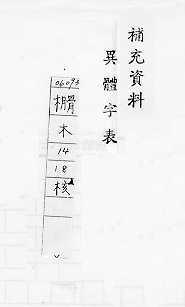 補充資料
異體字表
06093
木
14
18
核